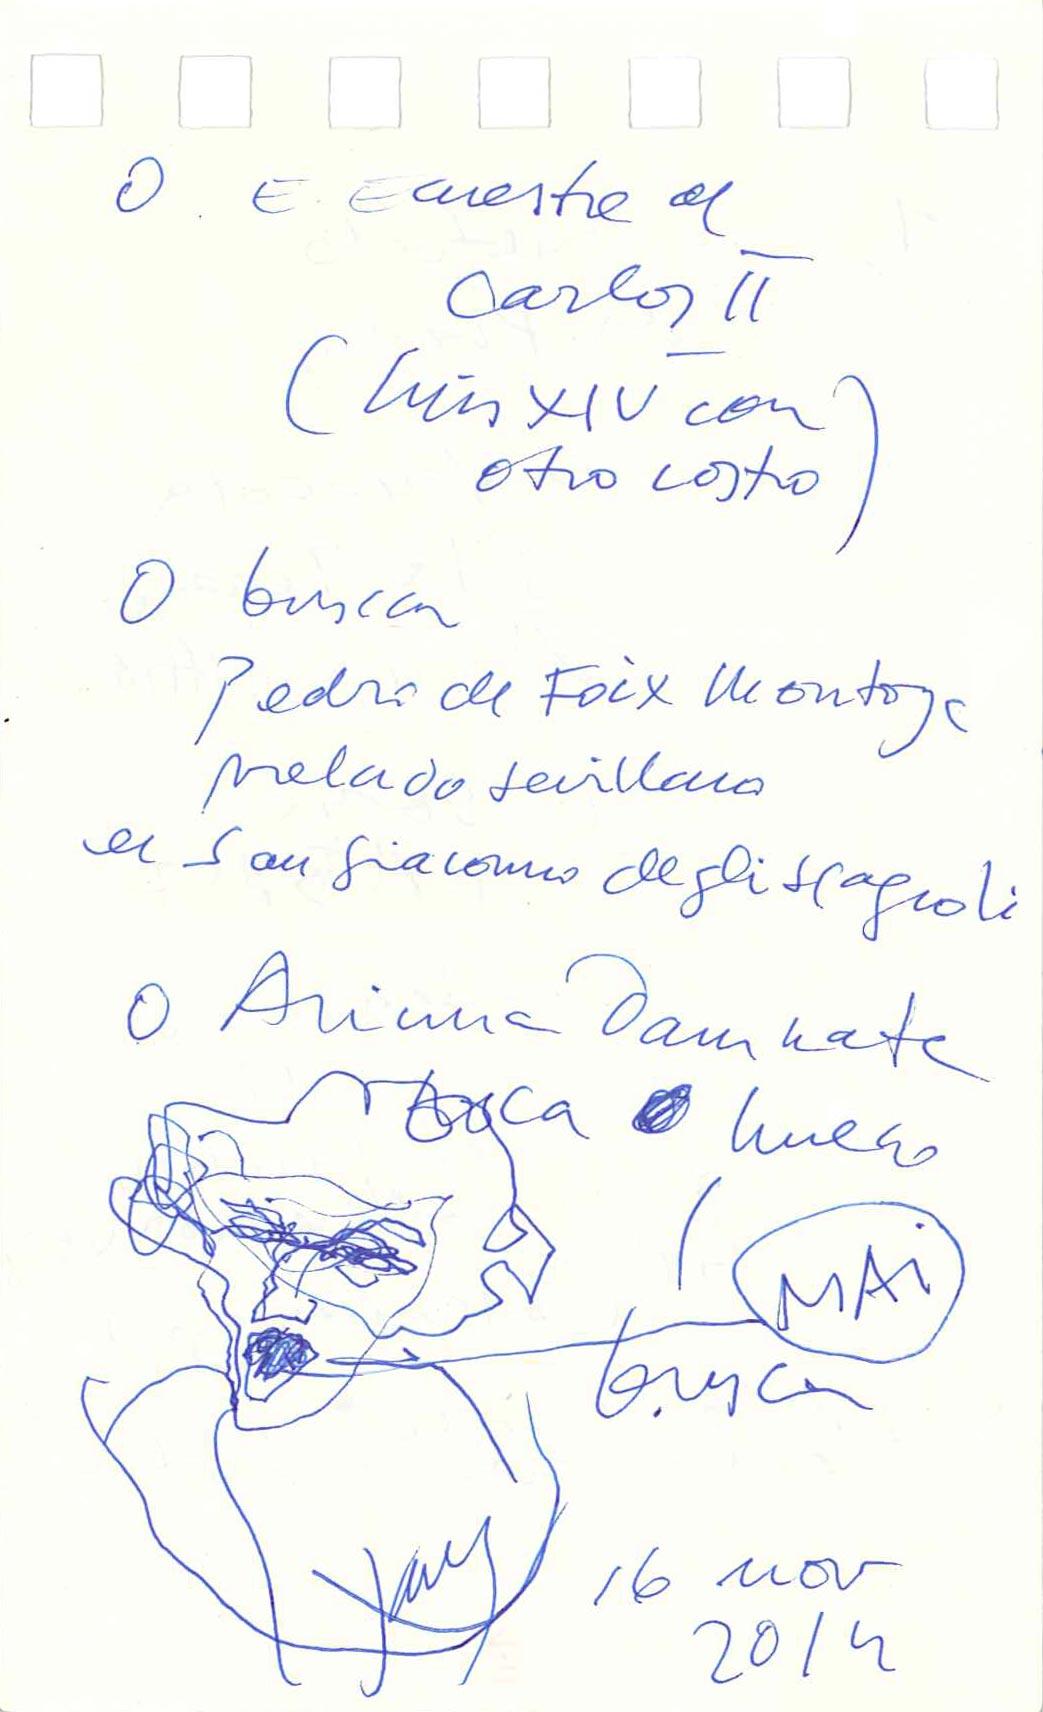 O E. Ecuestre de
Carlos II
(Luis XIV con
otro rostro)
O buscar
Pedro de Foix Montoya
prelado sevillano
en San Giacomo degli Spagnoli
O Anima Damnata
boca O hueco
MAi
buscar
16 nov
2014